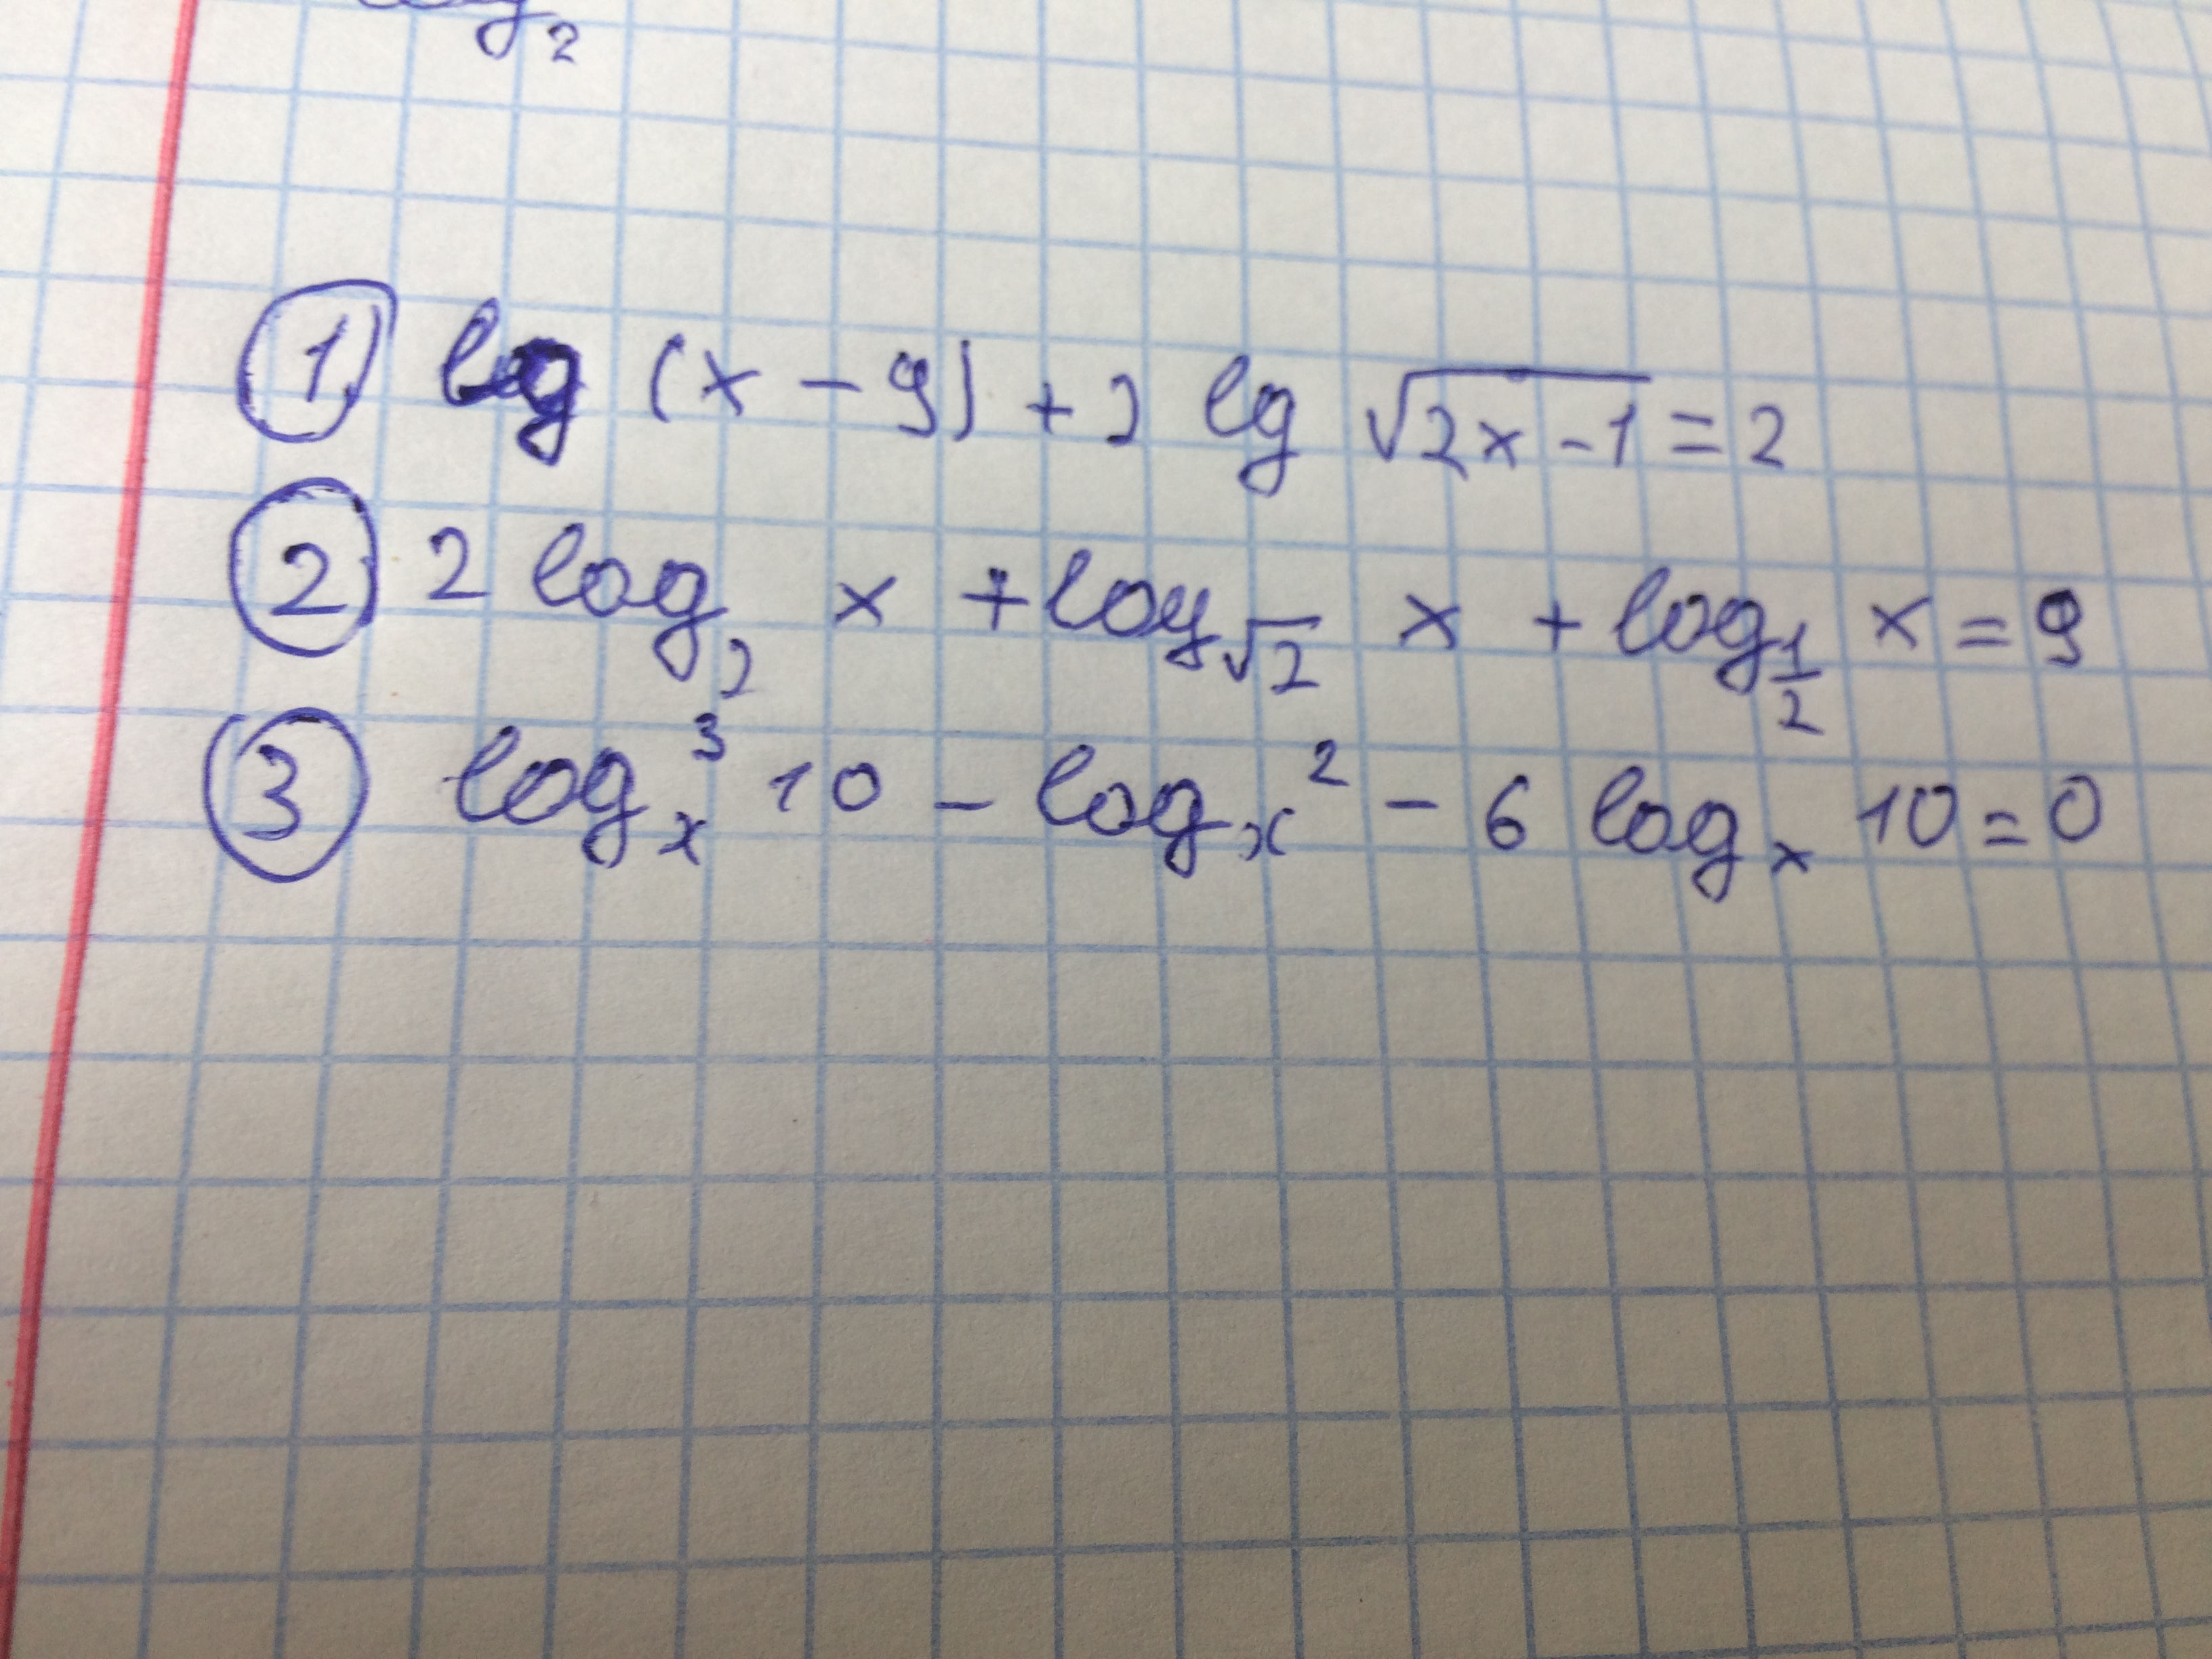 log₂
① lg (x - 9) + 2 lg √(2x - 1) = 2
② 2 log₂ x + log_√2 x + log_1/2 x = 9
③ logₓ³ 10 - logₓ² - 6 logₓ 10 = 0